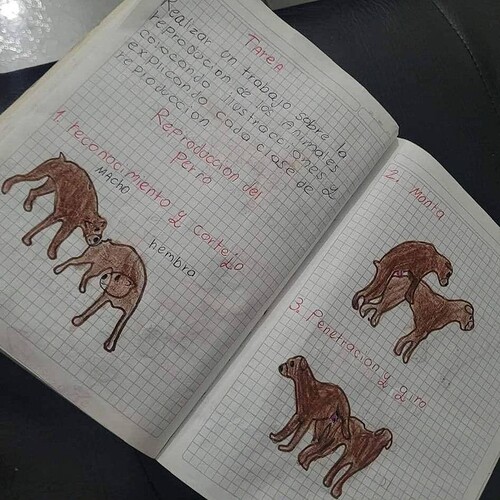 Tarea
Realizar un trabajo sobre la
reproduccion de llos Animales
colocando illustraccioneis y
explicando cada clase de
reproduccion
Reproduccion del
perro
1. reconocimiento y cortejo
MACHO
hembra
2. Monta
3. Penetracion y giro